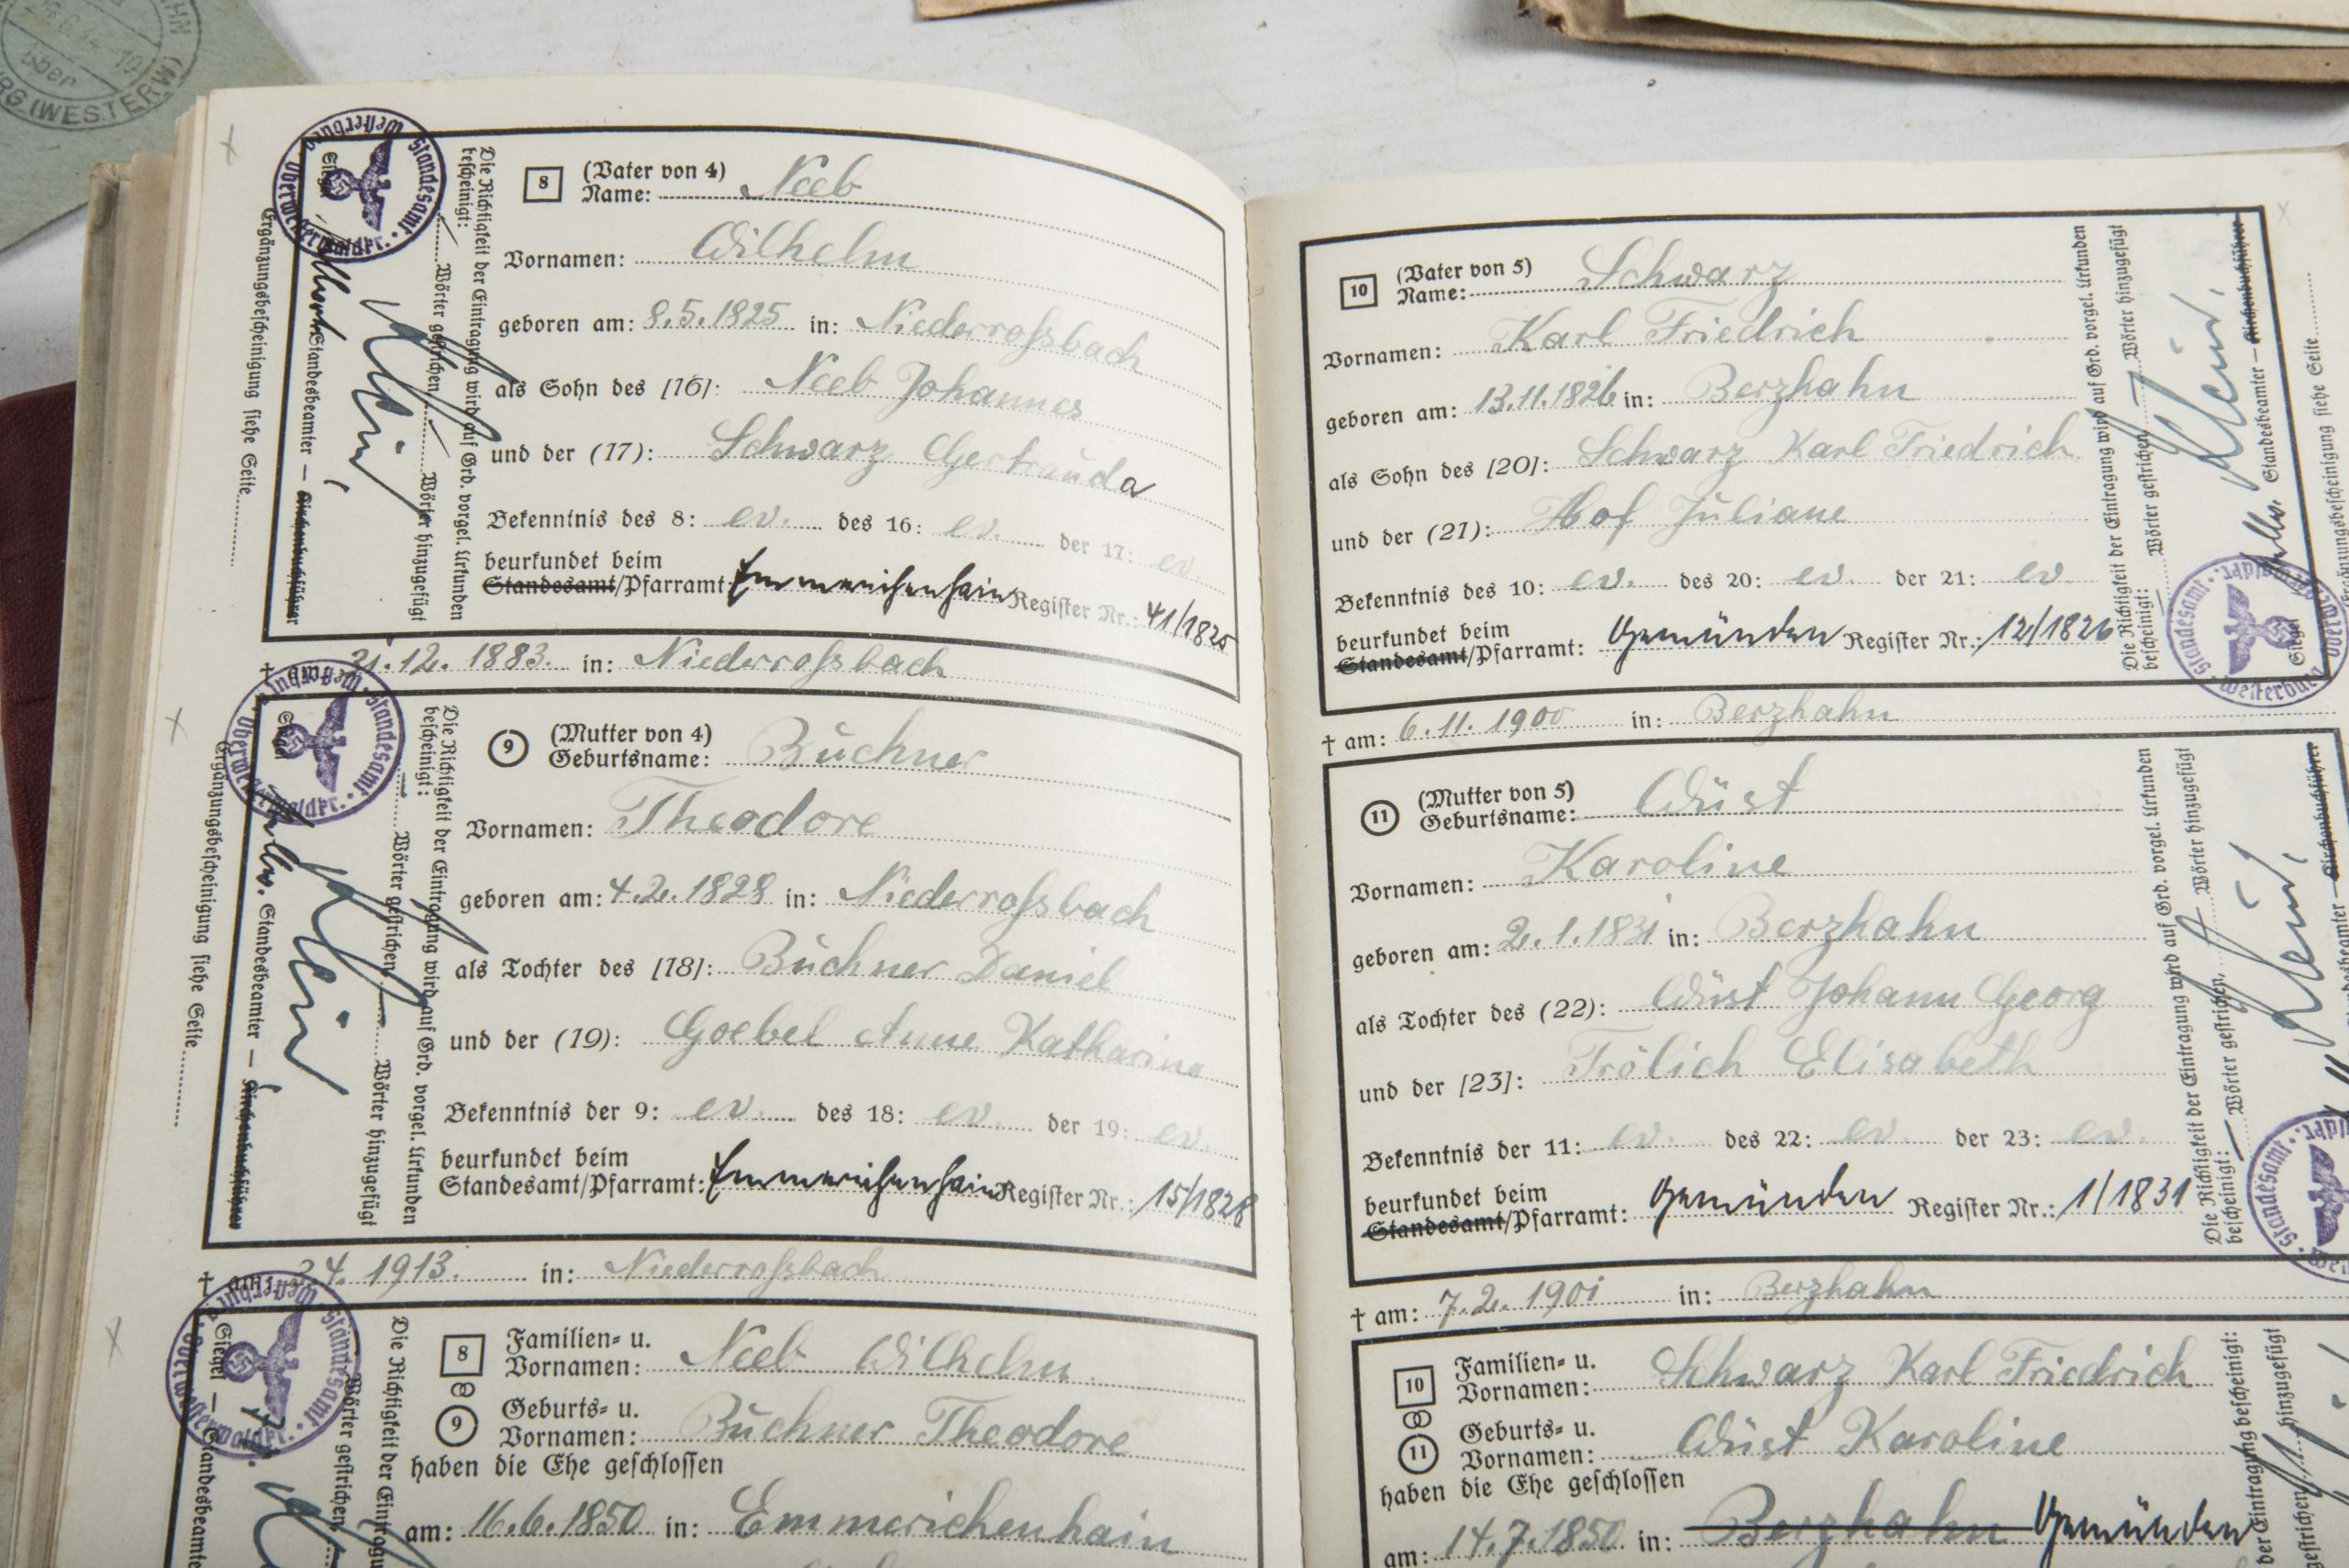 8 (Vater von 4)
Name: Neeb
Vornamen: Wilhelm
geboren am: 8.5.1825 in: Niederroßbach
als Sohn des [16]: Neeb Johannes
und der (17): Schwarz Gertrauda
Bekenntnis des 8: ev. des 16: ev. der 17: ev.
beurkundet beim
Standesamt/Pfarramt: Emmerichenhain Register Nr.: 41/1825
† am: 21.12.1883. in: Niederroßbach
9 (Mutter von 4)
Geburtsname: Büchner
Vornamen: Theodore
geboren am: 4.2.1828 in: Niederroßbach
als Tochter des [18]: Büchner Daniel
und der (19): Goebel Anne Katharina
Bekenntnis der 9: ev. des 18: ev. der 19: ev.
beurkundet beim
Standesamt/Pfarramt: Emmerichenhain Register Nr.: 15/1828
† am: 1913. in: Niederroßbach
8 Familien- u.
Vornamen: Neeb Wilhelm.
9 Geburts- u.
Vornamen: Büchner Theodore
haben die Ehe geschlossen
am: 16.6.1850 in: Emmerichenhain
Die Richtigkeit der Eintragung wird auf Grd. vorgel. Urkunden
bescheinigt: Wörter gestrichen Wörter hinzugefügt
Klein
Standesbeamter — Kirchenbuchführer
Ergänzungsbescheinigung siehe Seite
Siegel
Standesamt Westerburg Oberwesterwaldkr.
Die Richtigkeit der Eintragung wird auf Grd. vorgel. Urkunden
bescheinigt: Wörter gestrichen Wörter hinzugefügt
Klein
Standesbeamter — Kirchenbuchführer
Ergänzungsbescheinigung siehe Seite
Siegel
Standesamt Westerburg Oberwesterwaldkr.
Siegel
Standesamt Westerburg Oberwesterwaldkr.
Wörter gestrichen
10 (Vater von 5)
Name: Schwarz
Vornamen: Karl Friedrich
geboren am: 13.11.1826 in: Berzhahn
als Sohn des [20]: Schwarz Karl Friedrich
und der (21): Hof Juliane
Bekenntnis des 10: ev. des 20: ev. der 21: ev.
beurkundet beim
Standesamt/Pfarramt: Gemünden Register Nr.: 12/1826
† am: 6.11.1900 in: Berzhahn
11 (Mutter von 5)
Geburtsname: Wüst
Vornamen: Karoline
geboren am: 2.1.1831 in: Berzhahn
als Tochter des (22): Wüst Johann Georg
und der [23]: Frölich Elisabeth
Bekenntnis der 11: ev. des 22: ev. der 23: ev.
beurkundet beim
Standesamt/Pfarramt: Gemünden Register Nr.: 1/1831
† am: 7.2.1901 in: Berzhahn
10 Familien- u.
Vornamen: Schwarz Karl Friedrich
11 Geburts- u.
Vornamen: Wüst Karoline
haben die Ehe geschlossen
am: 14.7.1850 in: Berzhahn Gemünden
Die Richtigkeit der Eintragung wird auf Grd. vorgel. Urkunden
bescheinigt: Wörter gestrichen, Wörter hinzugefügt
Klein
Standesbeamter — Kirchenbuchführer
Ergänzungsbescheinigung siehe Seite
Siegel
Standesamt Westerburg
Die Richtigkeit der Eintragung wird auf Grd. vorgel. Urkunden
bescheinigt: Wörter gestrichen, Wörter hinzugefügt
Klein
Standesamt
über
(WESTERW)